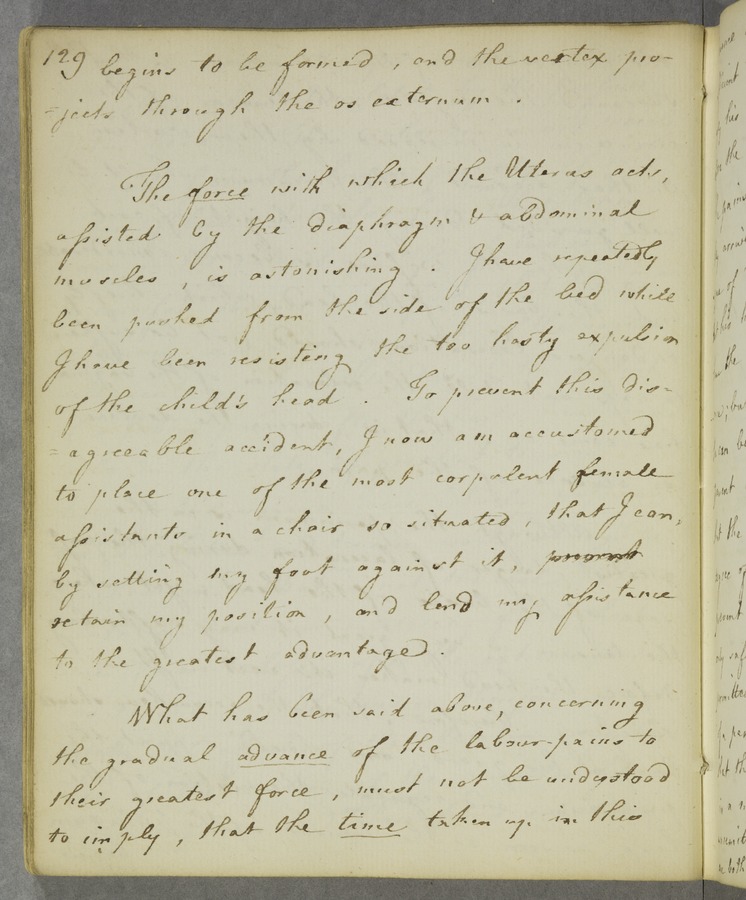 129 begins to be formed, and the vertex pro-
=jects through the os externum.
The force with which the Uterus acts,
assisted by the diaphragm & abdominal
muscles, is astonishing. I have repeatedly
been pushed from the side of the bed while
I have been resisting the too hasty expulsion
of the child's head. To prevent this dis=
=agreeable accident, I now am accustomed
to place one of the most corpulent female
assistants in a chair so situated, that I can,
by setting my foot against it,
retain my position, and lend my assistance
to the greatest advantage.
What has been said above, concerning
the gradual advance of the labour-pains to
their greatest force, must not be understood
to imply, that the time taken up in this